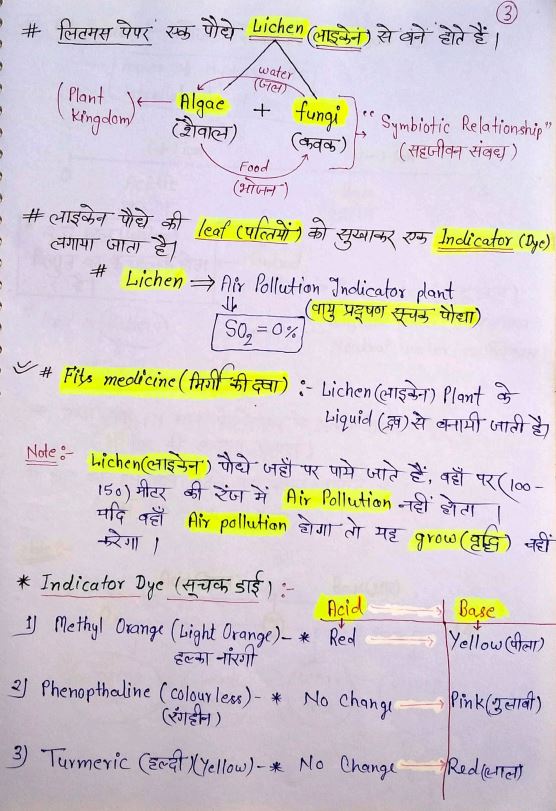 3
# लिटमस पेपर एक पौधे Lichen (लाइकेन) से बनें होते हैं।
water
(जल)
(Plant Kingdom) Algae + fungi "Symbiotic Relationship"
(शैवाल) (कवक) (सहजीवन संबंध)
Food
(भोजन)
# लाइकेन पौधे की leaf (पत्तियों) को सुखाकर एक Indicator (Dye)
लगाया जाता है।
# Lichen ⇒ Air Pollution Indicator plant
(वायु प्रदूषण सूचक पौधा)
SO₂ = 0%
# Fits medicine (मिर्गी की दवा) :- Lichen (लाइकेन) Plant के
Liquid (द्रव) से बनायी जाती है।
Note:- Lichen (लाइकेन) पौधे जहाँ पर पाये जाते हैं, वहाँ पर (100-
150) मीटर की रेंज में Air Pollution नहीं होता।
यदि वहाँ Air pollution होगा तो यह grow (वृद्धि) नहीं
करेगा।
* Indicator Dye (सूचक डाई) :-
Acid → Base
1) Methyl Orange (Light Orange) - * Red → Yellow (पीला)
हल्का नारंगी
2) Phenopthaline (colourless) - * No Change → Pink (गुलाबी)
(रंगहीन)
3) Turmeric (हल्दी) (Yellow) - * No Change → Red (लाल)